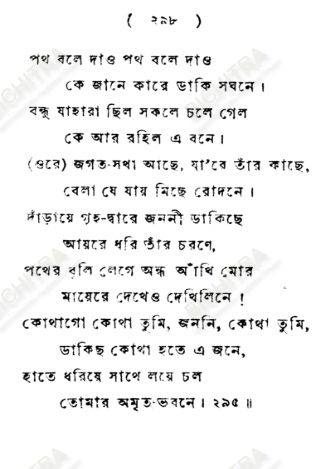 ( ২৯৮ )
পথ বলে দাও পথ বলে দাও
কে জানে কারে ডাকি সঘনে।
বন্ধু যাহারা ছিল সকলে চলে গেল
কে আর রহিল এ বনে।
(ওরে) জগত-সখা আছে, যা'বে তাঁর কাছে,
বেলা যে যায় মিছে রোদনে।
দাঁড়ায়ে গৃহ-দ্বারে জননী ডাকিছে
আয়রে ধরি তাঁর চরণে,
পথের ধূলি লেগে অন্ধ আঁখি মোর
মায়েরে দেখেও দেখিলিনে!
কোথাগো কোথা তুমি, জননি, কোথা তুমি,
ডাকিছ কোথা হতে এ জনে,
হাতে ধরিয়ে সাথে লয়ে চল
তোমার অমৃত-ভবনে। ২৯৫॥
BICHITRA